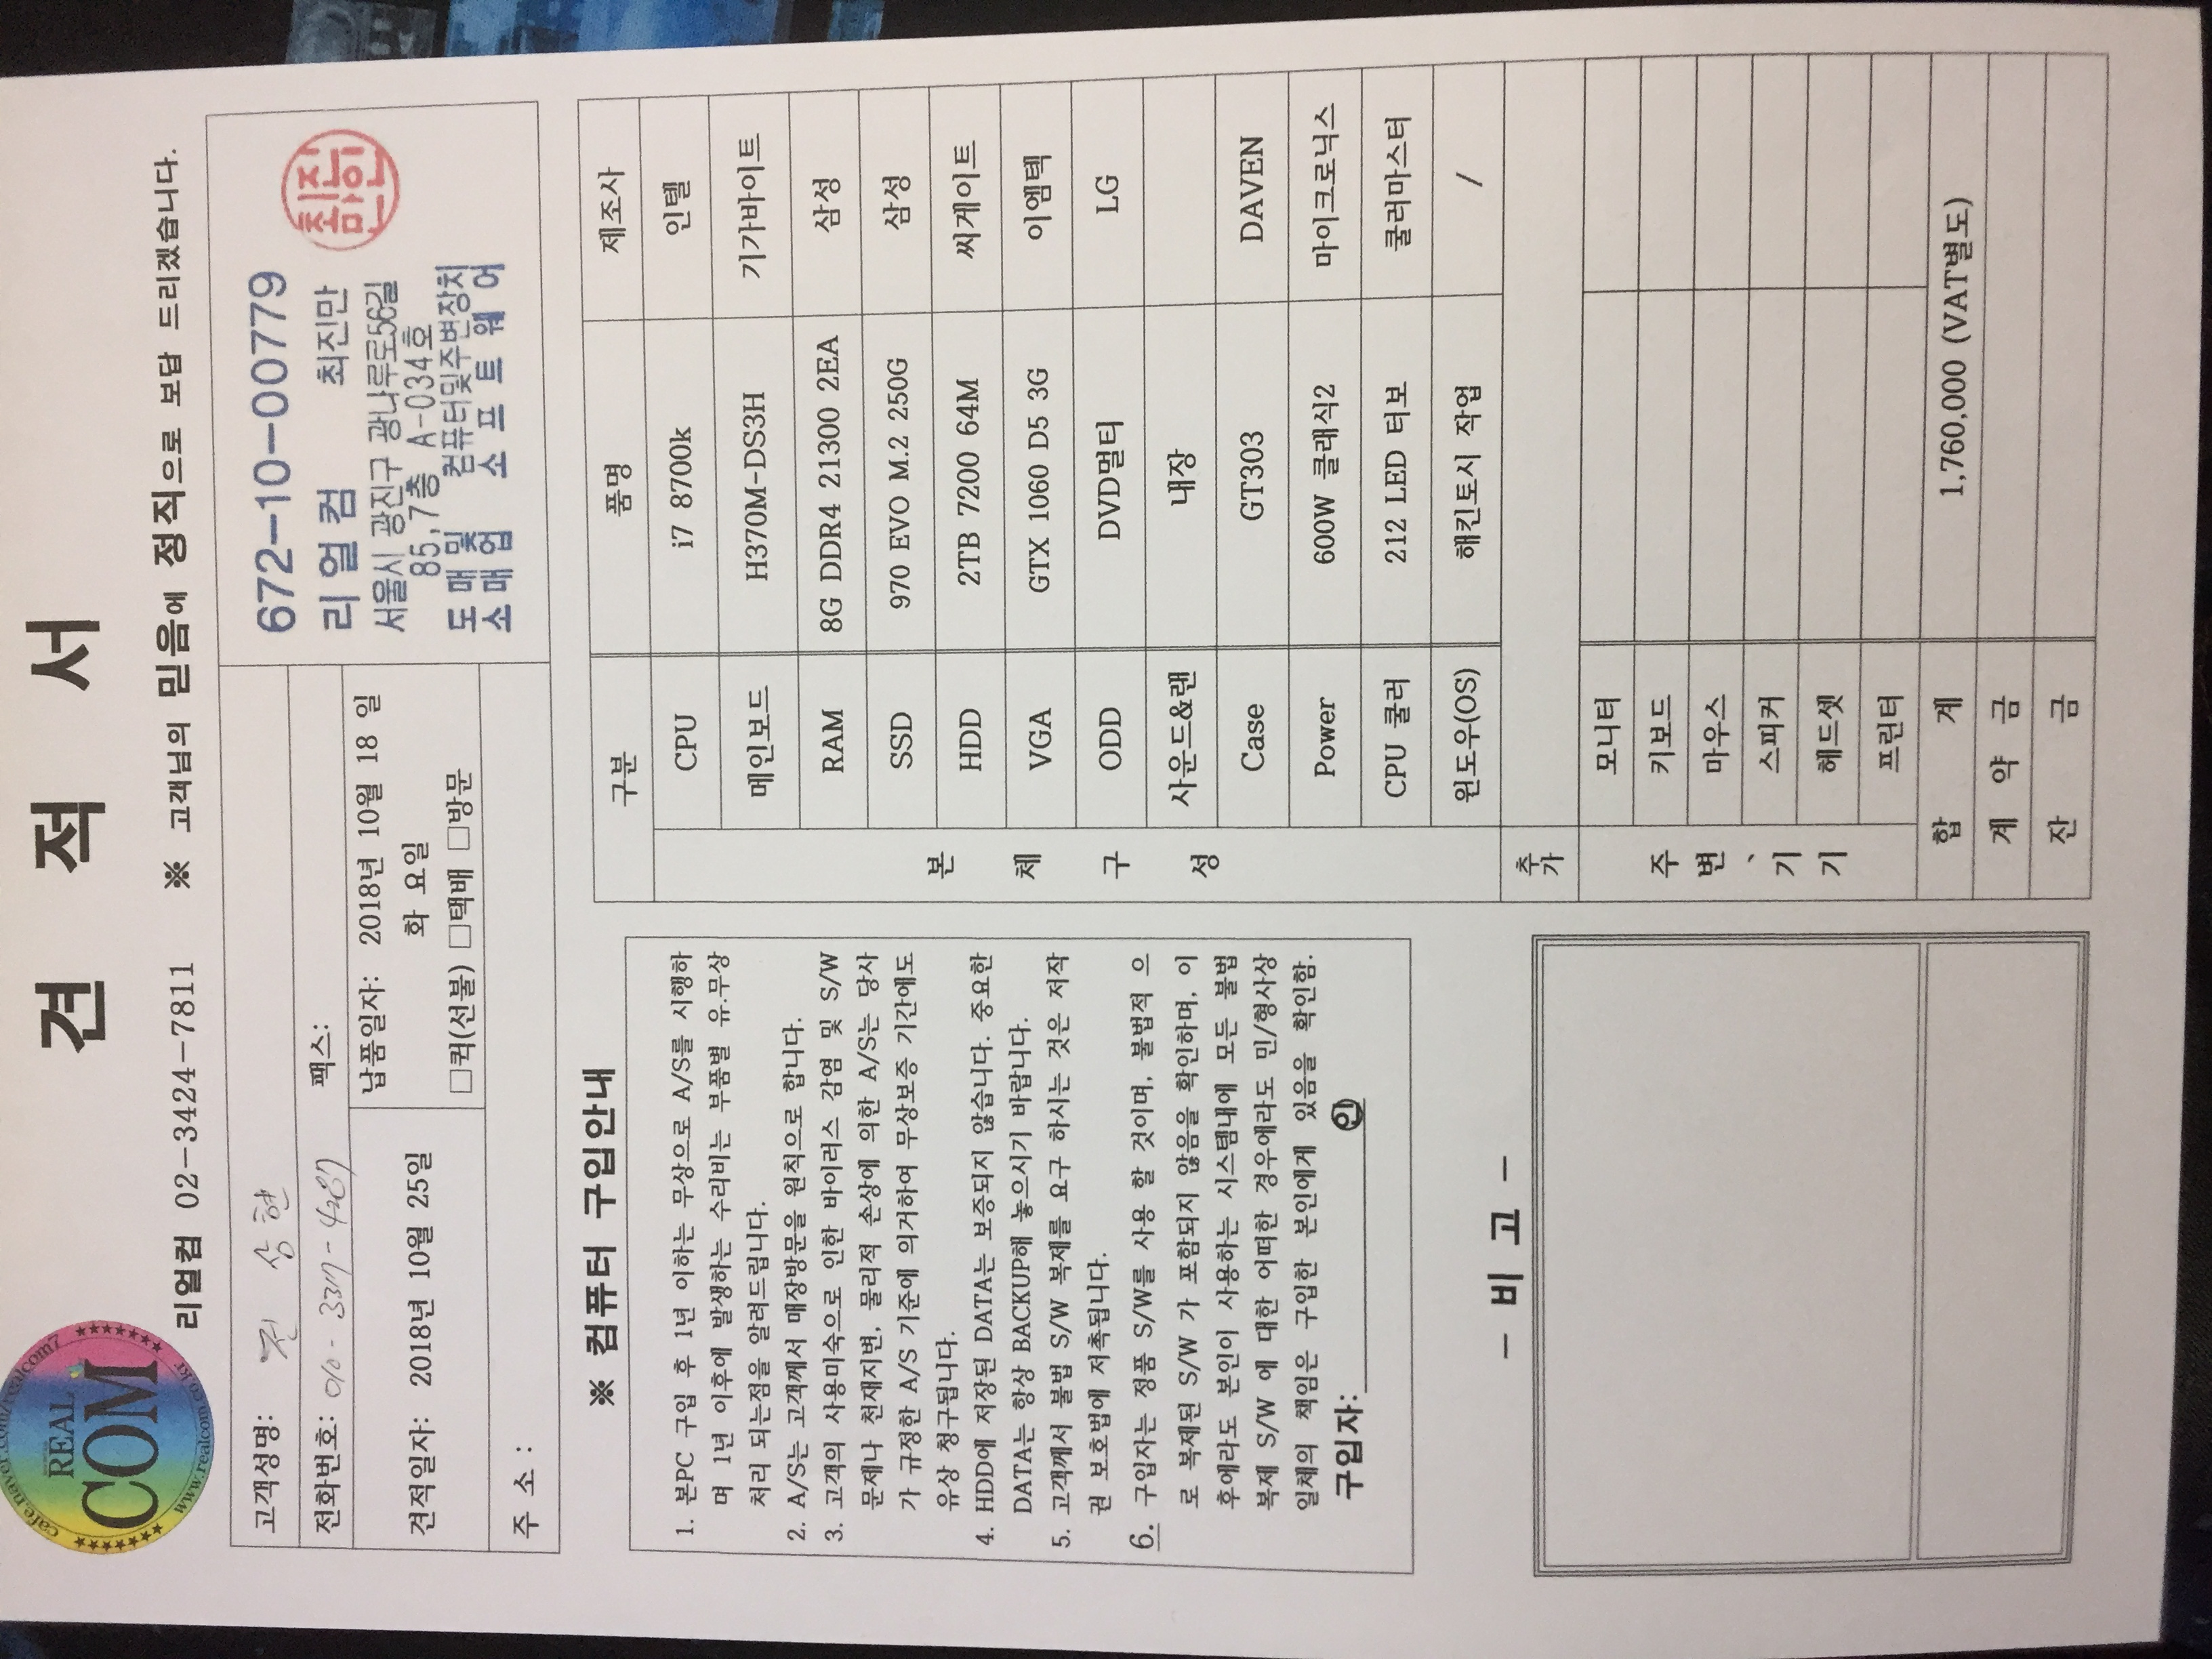 견 적 서
cafe.naver.com/realcom7
REAL
COM
www.realcom.co.kr
리얼컴 02-3424-7811 ※ 고객님의 믿음에 정직으로 보답 드리겠습니다.
고객성명: 전 상 현
전화번호: 팩스:
견적일자: 2018년 10월 25일
납품일자: 2018년 10월 18 일
화 요일
□퀵(선불) □택배 □방문
주 소 :
672-10-00779
리얼컴 최진만
서울시 광진구 광나루로56길
85,7층 A-034호
도매및 컴퓨터및주변장치
소매업 소프트웨어
최진만인
※ 컴퓨터 구입안내
1. 본PC 구입 후 1년 이하는 무상으로 A/S를 시행하
며 1년 이후에 발생하는 수리비는 부품별 유.무상
처리 되는점을 알려드립니다.
2. A/S는 고객께서 매장방문을 원칙으로 합니다.
3. 고객의 사용미숙으로 인한 바이러스 감염 및 S/W
문제나 천재지변, 물리적 손상에 의한 A/S는 당사
가 규정한 A/S 기준에 의거하여 무상보증 기간에도
유상 청구됩니다.
4. HDD에 저장된 DATA는 보증되지 않습니다. 중요한
DATA는 항상 BACKUP해 놓으시기 바랍니다.
5. 고객께서 불법 S/W 복제를 요구 하시는 것은 저작
권 보호법에 저촉됩니다.
6. 구입자는 정품 S/W를 사용 할 것이며, 불법적 으
로 복제된 S/W 가 포함되지 않음을 확인하며, 이
후에라도 본인이 사용하는 시스템내에 모든 불법
복제 S/W 에 대한 어떠한 경우에라도 민/형사상
일체의 책임은 구입한 본인에게 있음을 확인함.
구입자: 인
- 비 고 -
구분 품명 제조사
본 체 구 성
CPU i7 8700k 인텔
메인보드 H370M-DS3H 기가바이트
RAM 8G DDR4 21300 2EA 삼성
SSD 970 EVO M.2 250G 삼성
HDD 2TB 7200 64M 씨게이트
VGA GTX 1060 D5 3G 이엠텍
ODD DVD멀티 LG
사운드&랜 내장
Case GT303 DAVEN
Power 600W 클래식2 마이크로닉스
CPU 쿨러 212 LED 터보 쿨러마스터
윈도우(OS) 해킨토시 작업 /
추가
주 변 、 기 기
모니터
키보드
마우스
스피커
헤드셋
프린터
합 계 1,760,000 (VAT별도)
계 약 금
잔 금